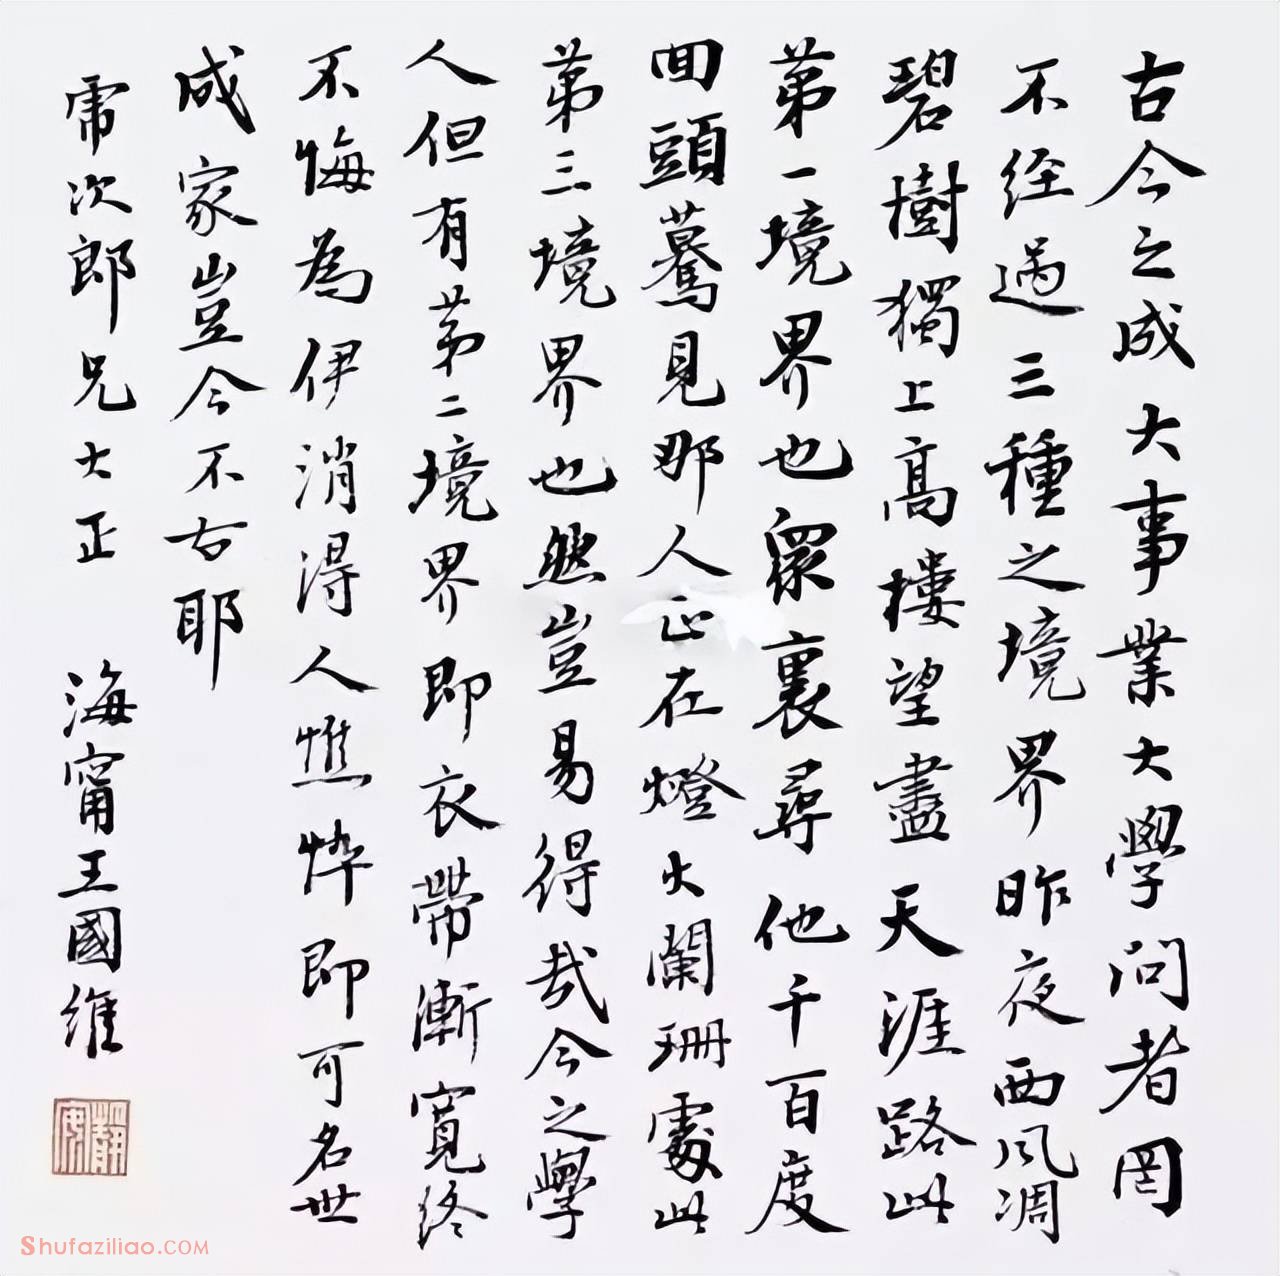 古今之成大事業大學問者罔
不经過三種之境界昨夜西风凋
碧樹獨上高樓望盡天涯路此
第一境界也眾裏尋他千百度
回頭驀見那人正在燈火闌珊處此
第三境界也然豈易得哉今之學
人但有第二境界即衣帶漸寬終
不悔為伊消得人憔悴即可名世
成家豈今不古耶
雷次郎兄大正 海甯王國維
靜安
Shufaziliao.COM